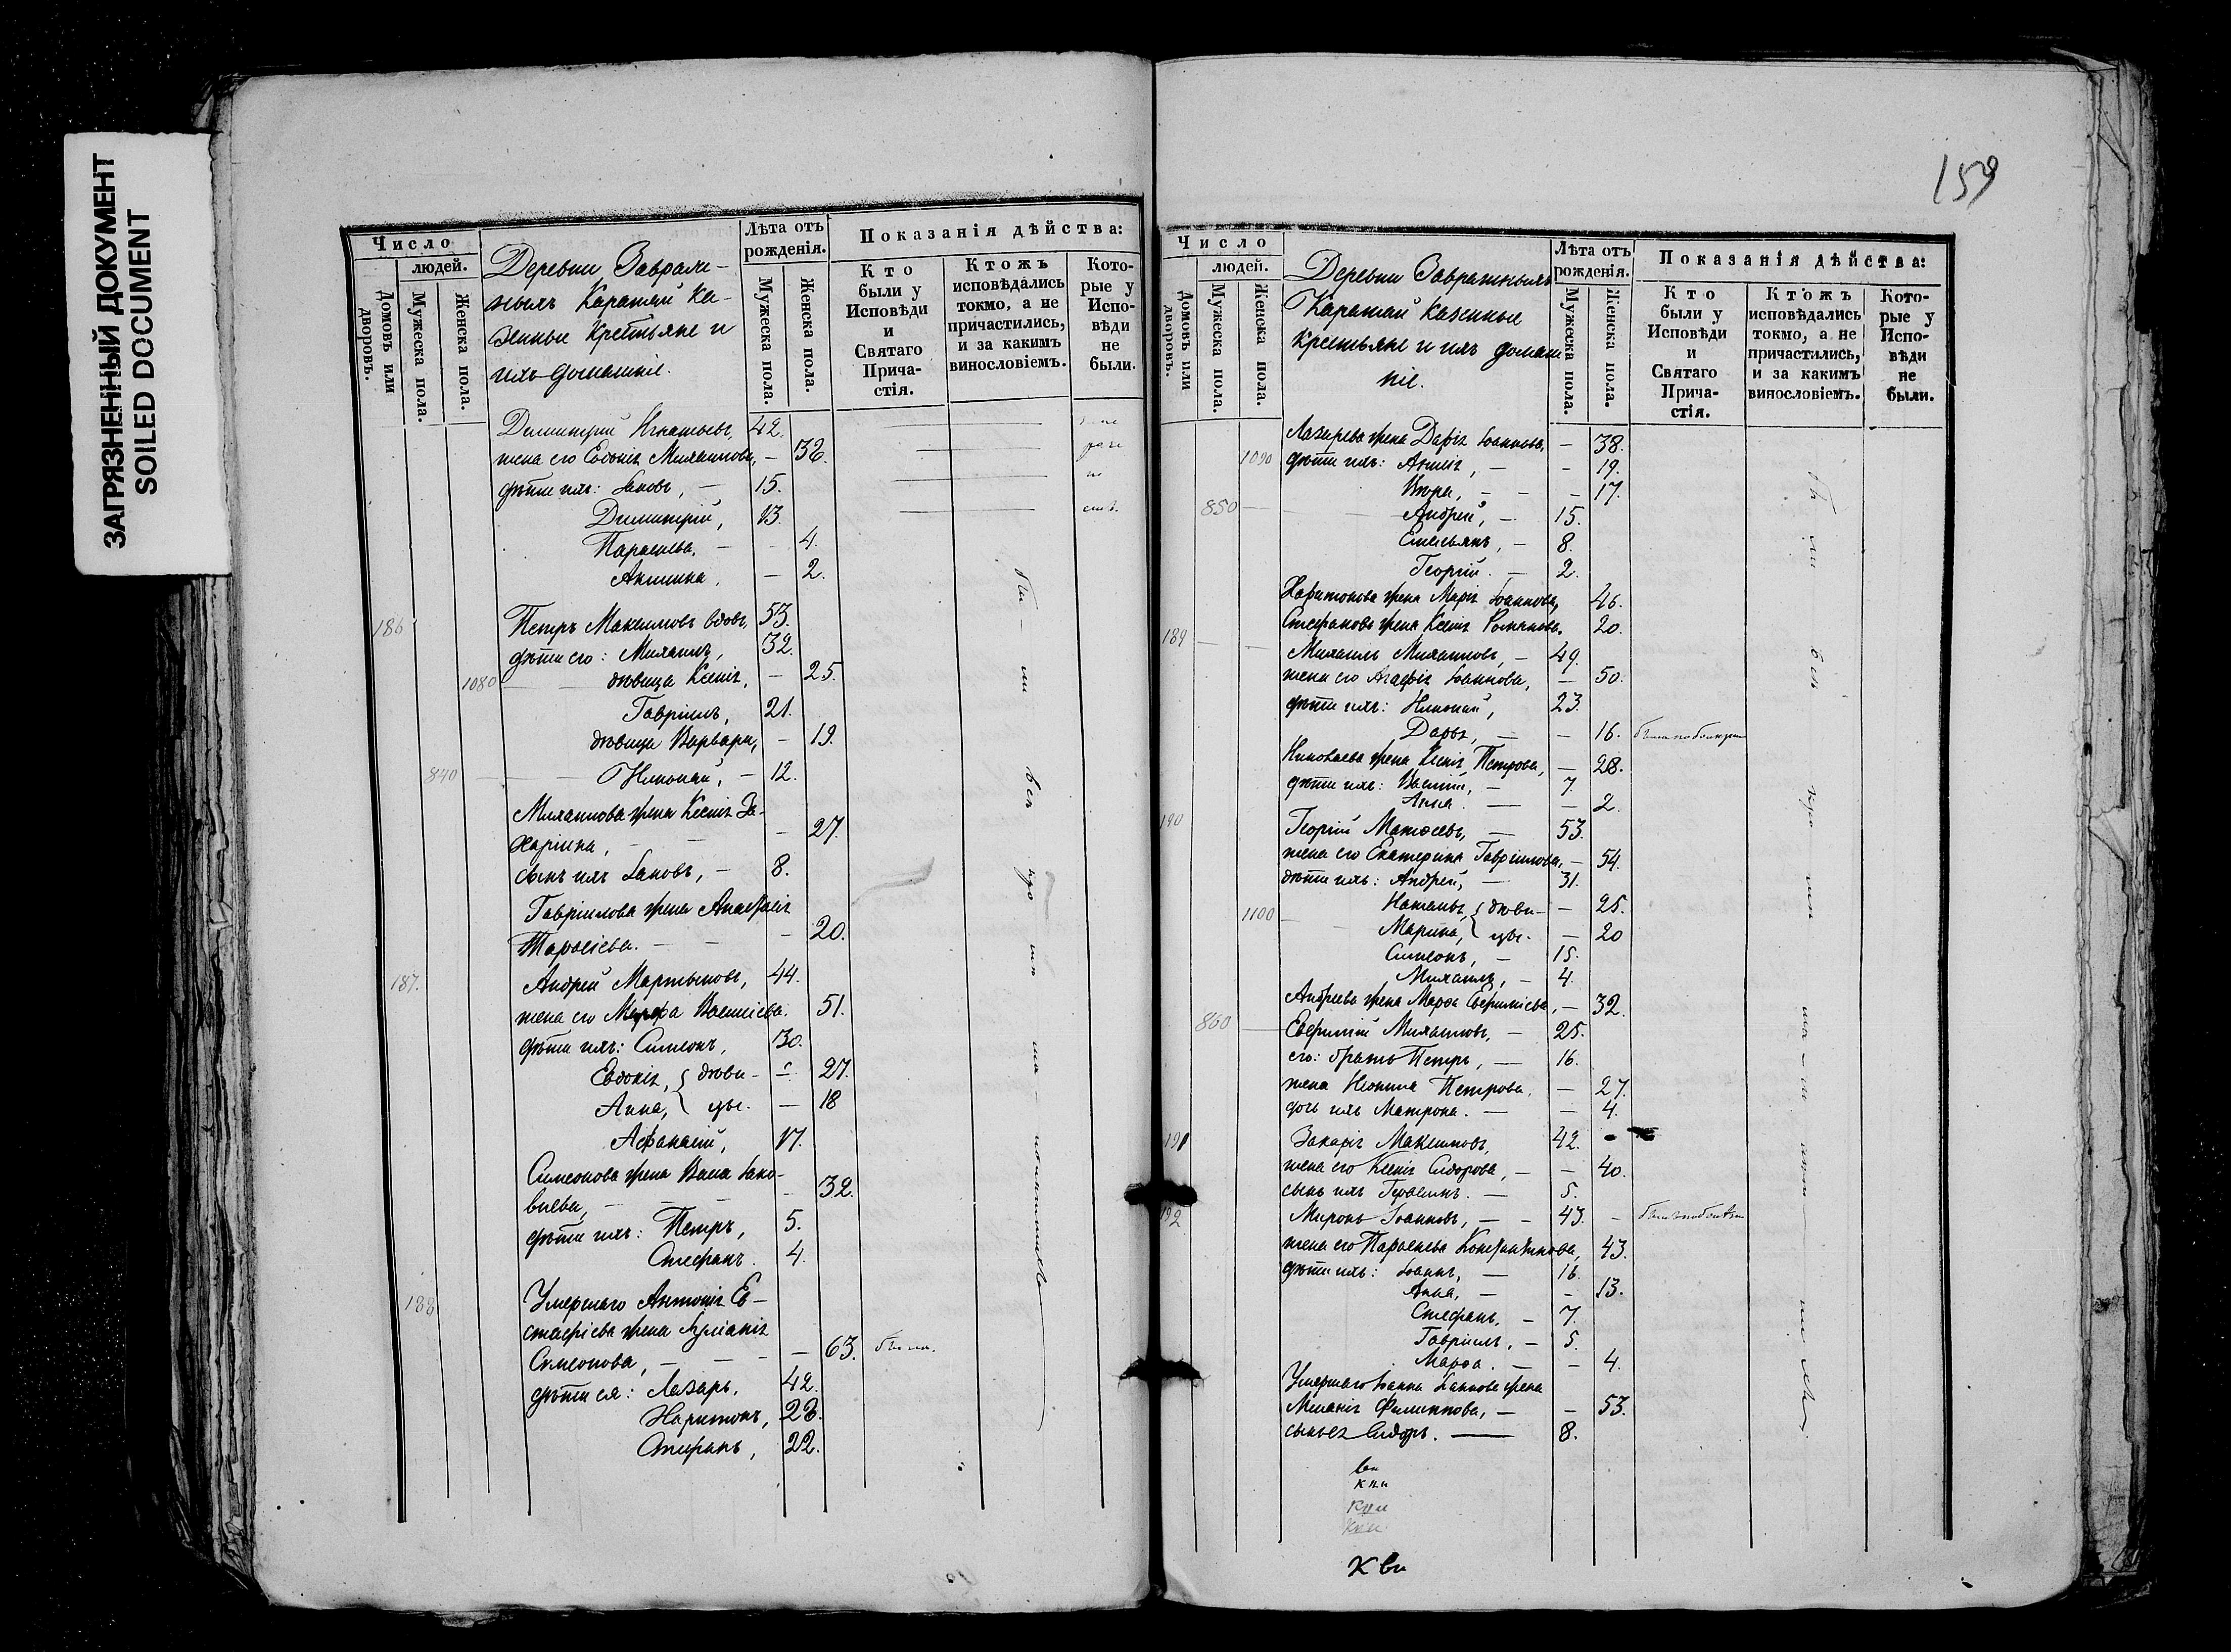 ЗАГРЯЗНЕННЫЙ ДОКУМЕНТ
SOILED DOCUMENT
Число
людей.
Домовъ или дворовъ.
Мужеска пола.
Женска пола.
Деревни Завраж-
ныхъ Каратай Ка-
зенные Крестьяне и
ихъ домашніе.
Лѣта отъ рожденія.
Мужеска пола.
Женска пола.
Показанія дѣйства:
Кто были у Исповѣди и Святаго Причастія.
Ктожъ исповѣдались токмо, а не причастились, и за какимъ винословіемъ.
Которые у Исповѣди не были.
Димитрій Игнатьевъ, 42.
жена его Евдокія Михаилова, — 32.
дѣти ихъ: Іаковъ, — 15.
Димитрій, 13.
Параскева, — 4.
Акилина, — 2.
186 Петръ Максимовъ вдовъ, 53.
дѣти его: Михаилъ, 32.
1080 — дѣвица Ксенія, — 25.
Гавріилъ, 21.
дѣвица Варвара, — 19.
840 — Николай, — 12.
Михаилова жена Ксенія За-
харіина, — 27.
сынъ ихъ Іаковъ, — 8.
Гавріилова жена Анастасія
Тарасіева. — 20.
187. Андрей Мартыновъ, 44.
жена его Марфа Василіева. 51.
дѣти ихъ: Симеонъ, 30.
Евдокія, { дѣви- — 27.
Анна, { цы. — 18
Афанасій, 17.
Симеонова жена Васса Іако-
влева, — 32.
дѣти ихъ: Петръ, 5.
Стефанъ. 4.
188 Умершаго Антонія Ев-
стафіева жена Іуліанія
Симеонова, — 63. была.
дѣти ея: Лазарь, 42.
Харитонъ, 23.
Стефанъ, 22.
159
Число
людей.
Домовъ или дворовъ.
Мужеска пола.
Женска пола.
Деревни Завражныхъ
Каратай казенные
крестьяне и ихъ домаш
ніе.
Лѣта отъ рожденія.
Мужеска пола.
Женска пола.
Показанія дѣйства:
Кто были у Исповѣди и Святаго Причастія.
Ктожъ исповѣдались токмо, а не причастились, и за какимъ винословіемъ.
Которые у Исповѣди не были.
Лазарева жена Дарія Іоаннова, — 38.
1090 дѣти ихъ: — 19.
Вѣра, — — 17.
850 — Андрей, — 15.
Емельянъ, — 8.
Георгій. — 2.
Харитонова жена Марія Іоаннова, 46.
Стефанова жена Ксенія Романова. 20.
189 Михаилъ Михаиловъ, — 49.
жена его Агафія Іоаннова, — 50.
дѣти ихъ: Николай, 23.
Дарья, — 16.
Николаева жена Ксенія Петрова, — 28.
дѣти ихъ: Василій, — 7.
Анна. — 2.
190 Георгій Матвеевъ, — 53.
жена его Екатерина Гавріилова, — 54.
дѣти ихъ: Андрей, — 31.
1100 Наталья, { дѣви- — 25.
Марина, { цы. — 20
Симеонъ, — 15.
Михаилъ, — 4.
Андреева жена Марфа Евфиміева, — 32.
860 — Евфимій Михаиловъ, — 25.
его: братъ Петръ, — 16.
жена Неонила Петрова, — 27.
дочь ихъ Матрона. — 4.
191 Захарія Максимовъ, 42.
жена его Ксенія Сидорова, — 40.
сынъ ихъ Герасимъ. — 5.
192 Миронъ Іоанновъ, — 43.
жена его Параскева Константинова, 43.
дѣти ихъ: Іоаннъ, — 16.
Анна, — 13.
Стефанъ, — 7.
Гавріилъ, — 5.
Марфа. — 4.
Умершаго Іоанна Іаннова жена
Меланія Филиппова, — 53.
сынъ ея Сидоръ. — 8.